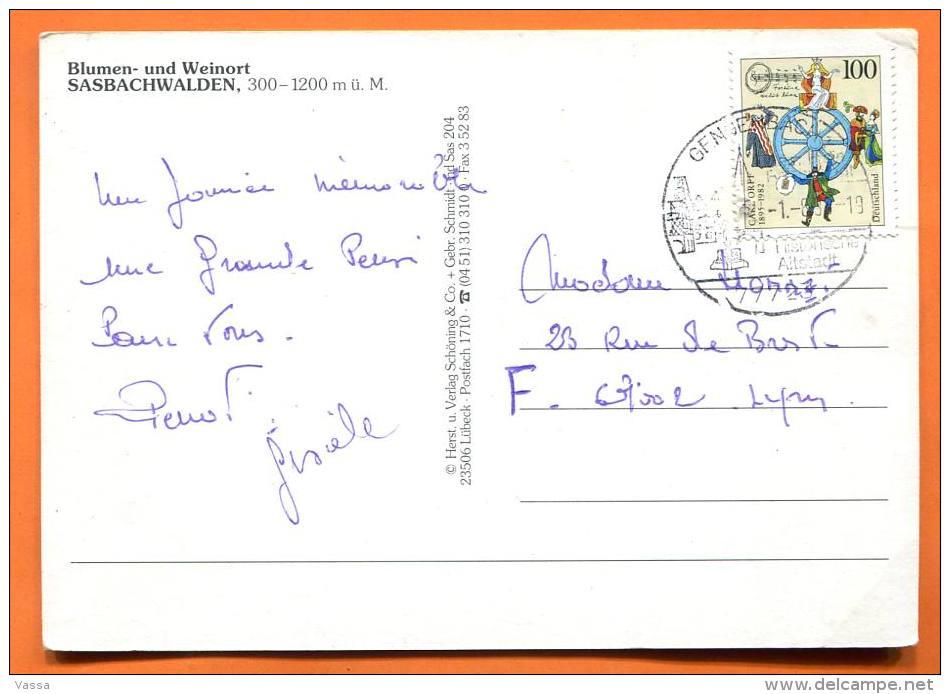 Blumen- und Weinort
SASBACHWALDEN, 300–1200 m ü. M.
Une
Une Grande Pensée
Pour Vous.
Gisèle
© Herst. u. Verlag Schöning & Co. + Gebr. Schmidt · nd Sas 204
23506 Lübeck · Postfach 1710 · ☎ (04 51) 310 310 · Fax 3 52 83
100
CARL ORFF
1895–1982
Deutschland
GENGENBACH
-1.-9 -19
Historische
Altstadt
77723
Madame
23 Rue de Brest
F. 69002 Lyon.
Vassa